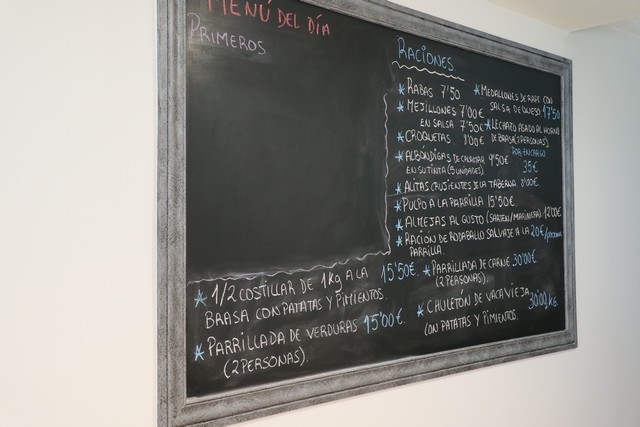 MENÚ DEL DÍA
PRIMEROS
RACIONES.
* RABAS 7'50
* MEJILLONES 7'00€
EN SALSA 7'50€
* CROQUETAS
* ALBÓNDIGAS DE CALAMAR 9'50€
EN SU TINTA (5 UNIDADES)
* MEDALLONES DE RAPE CON
SALSA DE 17'50
* LECHAZO ASADO AL HORNO
DE BRASA (2 PERSONAS)
POR ENCARGO
35€
* ALITAS CRUJIENTES DE LA TABERNA 8'00€
* PULPO A LA PARRILLA 15'50€
* ALMEJAS AL GUSTO (SARTEN/MARINERA) 12'00€
* RACIÓN DE RODABALLO SALVAJE A LA 20€/PERSONA
PARRILLA.
* 1/2 COSTILLAR DE 1Kg A LA 15'50€.
BRASA CON PATATAS Y PIMIENTOS.
* PARRILLADA DE VERDURAS 15'00€.
(2 PERSONAS).
* PARRILLADA DE CARNE 30'00€
(2 PERSONAS).
* CHULETON DE VACA VIEJA 30'00 KG
CON PATATAS Y PIMIENTOS.